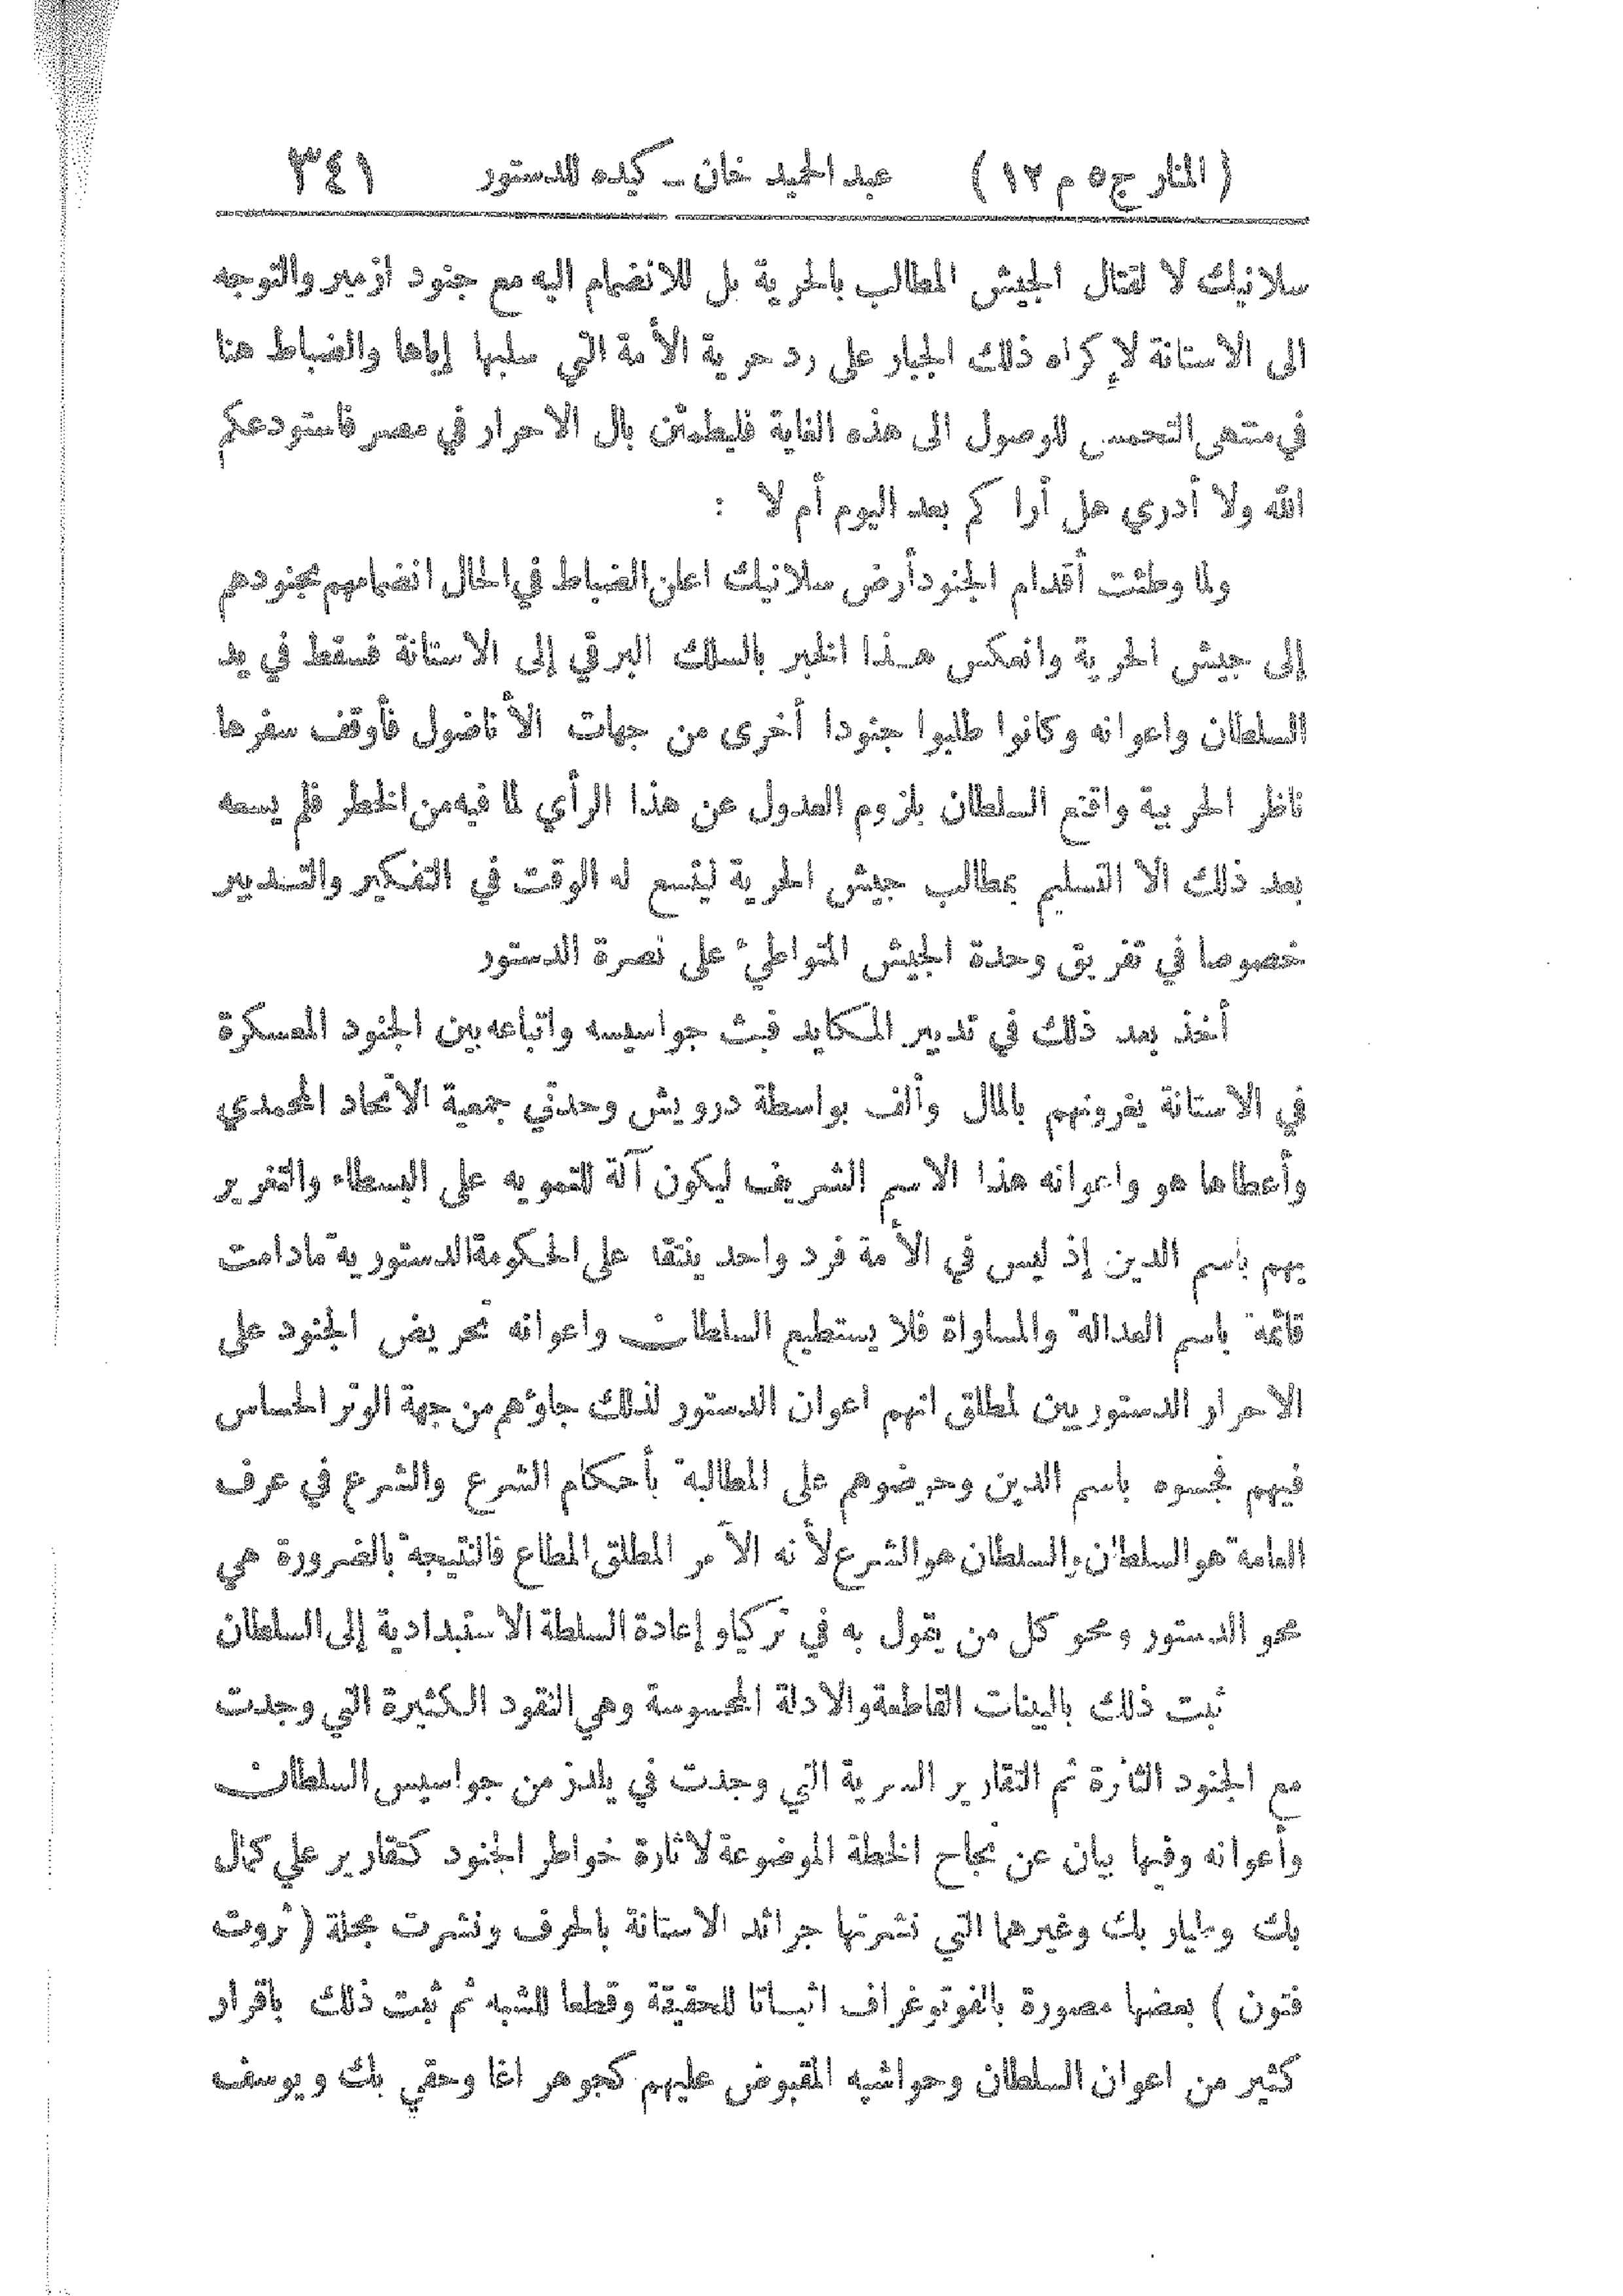 ( المنار ج ٥ م ١٢ ) عبد الحميد خان ــ كيده للدستور ٣٤١
سلانيك لا لقتال الجيش المطالب بالحرية بل للانضمام اليه مع جنود ازمير والتوجه
الى الاستانة لإ كراه ذلك الجبار على رد حرية الأمة التي سلبها إياها والضباط هنا
في منتهى التحمس للوصول الى هذه الغاية فليطمئن بال الاحرار في مصر فاستودعكم
الله ولا أدري هل أرا كم بعد اليوم أم لا :
ولما وطئت أقدام الجنود أرض سلانيك اعلن الضباط في الحال انضمامهم بجنودهم
إلى جيش الحرية وانعكس هـذا الخبر بالسلك البرقي إلى الاستانة فسقط في يد
السلطان واعوانه وكانوا طلبوا جنودا أخرى من جهات الأناضول فأوقف سفرها
ناظر الحربية واقنع السلطان بلزوم العدول عن هذا الرأي لما فيه من الخطر فلم يسعه
بعد ذلك الا التسليم بمطالب جيش الحرية ليتسع له الوقت في التفكير والتـدبير
خصوصا في تفريق وحدة الجيش المتواطئ على نصرة الدستور
أخذ بعد ذلك في تدبير المكايد فبث جواسيسه واتباعه بين الجنود المعسكرة
في الاستانة يغرونهم بالمال وألف بواسطة درويش وحدتي جمعية الاتحاد المحمدي
وأعطاها هو واعوانه هذا الاسم الشريف ليكون آلة للتمويه على البسطاء والتغرير
بهم باسم الدين إذ ليس في الأمة فرد واحد ينتقا على الحكومة الدستورية مادامت
قائمة باسم العدالة والمساواة فلا يستطيع السلطان واعوانه تحريض الجنود على
الاحرار الدستوريين لمطلق انهم اعوان الدستور لذلك جاؤهم من جهة الوتر الحساس
فيهم فجسوه باسم الدين وحرضوهم على المطالبة بأحكام الشرع والشرع في عرف
العامة هو السلطان والسلطان هو الشرع لأنه الآمر المطلق المطاع فالنتيجة بالضرورة هي
محو الدستور ومحو كل من يقول به في تركيا و إعادة السلطة الاستبدادية إلى السلطان
ثبت ذلك بالبينات القاطعة والادلة المحسوسة وهي النقود الكثيرة التي وجدت
مع الجنود الثائرة ثم التقارير السرية التي وجدت في يلدز من جواسيس السلطان
وأعوانه وفيها بيان عن نجاح الخطة الموضوعة لاثارة خواطر الجنود كتقارير علي كمال
بك وطيار بك وغيرهما التي نشرتها جرائد الاستانة بالحرف ونشرت مجلة ( ثروت
فتون ) بعضها مصورة بالفوتوغراف اثبـاتا للحقيقة وقطعا للشبه ثم ثبت ذلك باقرار
كثير من اعوان السلطان وحواشيه المقبوض عليهم كجوهر اغا وحقي بك ويوسف